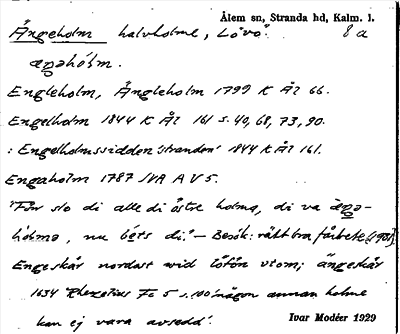 Ålem sn, Stranda hd, Kalm. l.
Ängeholm halvholme, Lövö. 8a
æŋəhól̀m.
Engleholm, Ängleholm 1799 K Ål 66.
Engelholm 1844 K Ål 161 s. 40, 68, 73, 90.
: Engelholmssidden 'stranden' 1844 K Ål 161.
Engaholm 1787 JVA A V 5.
"För slo di alle di östre holma, di va
holma, nu bets di." — Besök: rätt bra fårbete
Engeskär nordost wid löfön utom; ängeskär
1634 Rhezelius Fc 5 s. 100 'någon annan holme
kan ej vara avsedd'. Ivar Modéer 1929